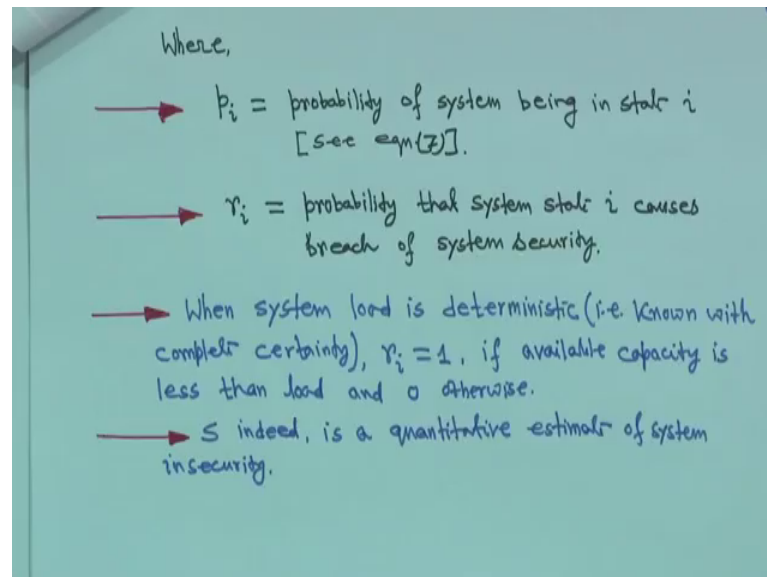 Where,
→ pᵢ = probability of system being in state i
[see eqn(7)].
→ rᵢ = probability that system state i causes
breach of system security.
→ When system load is deterministic (i.e. known with
complete certainty), rᵢ = 1, if available capacity is
less than load and 0 otherwise.
→ S indeed, is a quantitative estimate of system
insecurity.